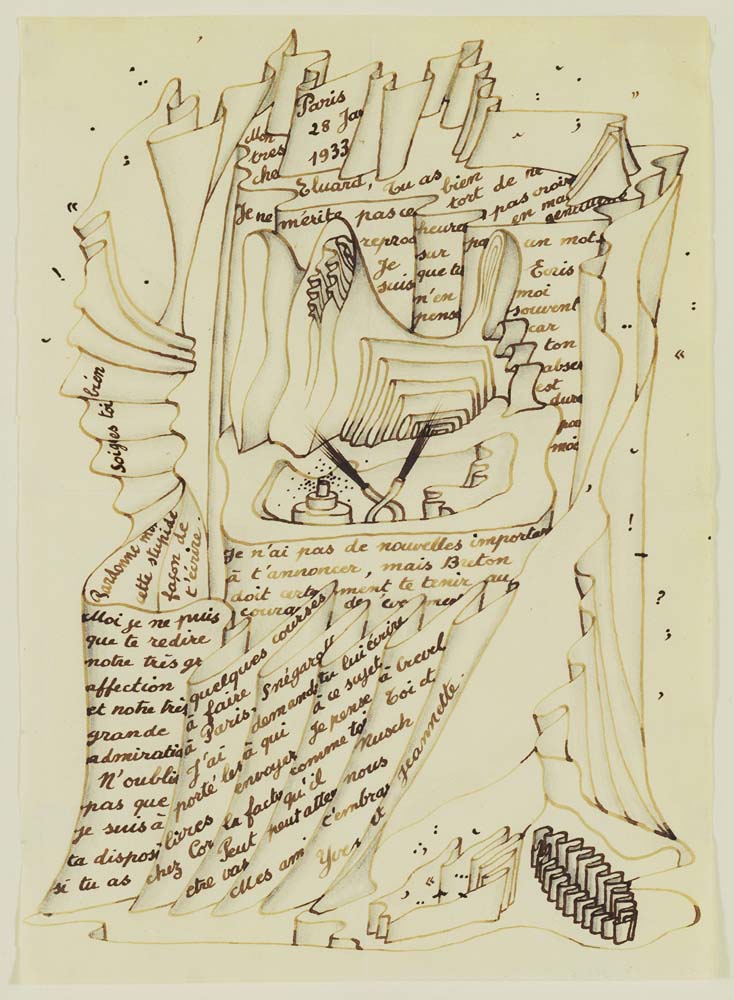 Paris
28 Ja
1933
Mon
très
che
Eluard, tu as bien tort de ne pas croire en ma
Je ne mérite pas ce
reproc heure pa un mot.
Je sur
suis que tu
n'en
pense
Ecris
moi
souvent
car
ton
absen
est
dure
pou
moi
soignes toi bien
Pardonne moi
cette stupide
façon de
t'écrire.
Je n'ai pas de nouvelles importan
à t'annoncer, mais Breton
doit certa ment te tenir au
coura des
Moi je ne puis
que te redire
notre très gr
affection
et notre très
grande
admiratio
N'oubli
pas que
je suis à
ta disposi
si tu as
quelques courses
à faire
à Paris. Snégarof
J'ai demand tu lui écrire
porté les à qui à ce sujet.
livres envoyer Je pense à Crevel
chez Cor la factu comme toi
qu'il Nusch Toi et
Peut peut atten nous
etre vas t'embras Jeannette.
Mes am et
Yves